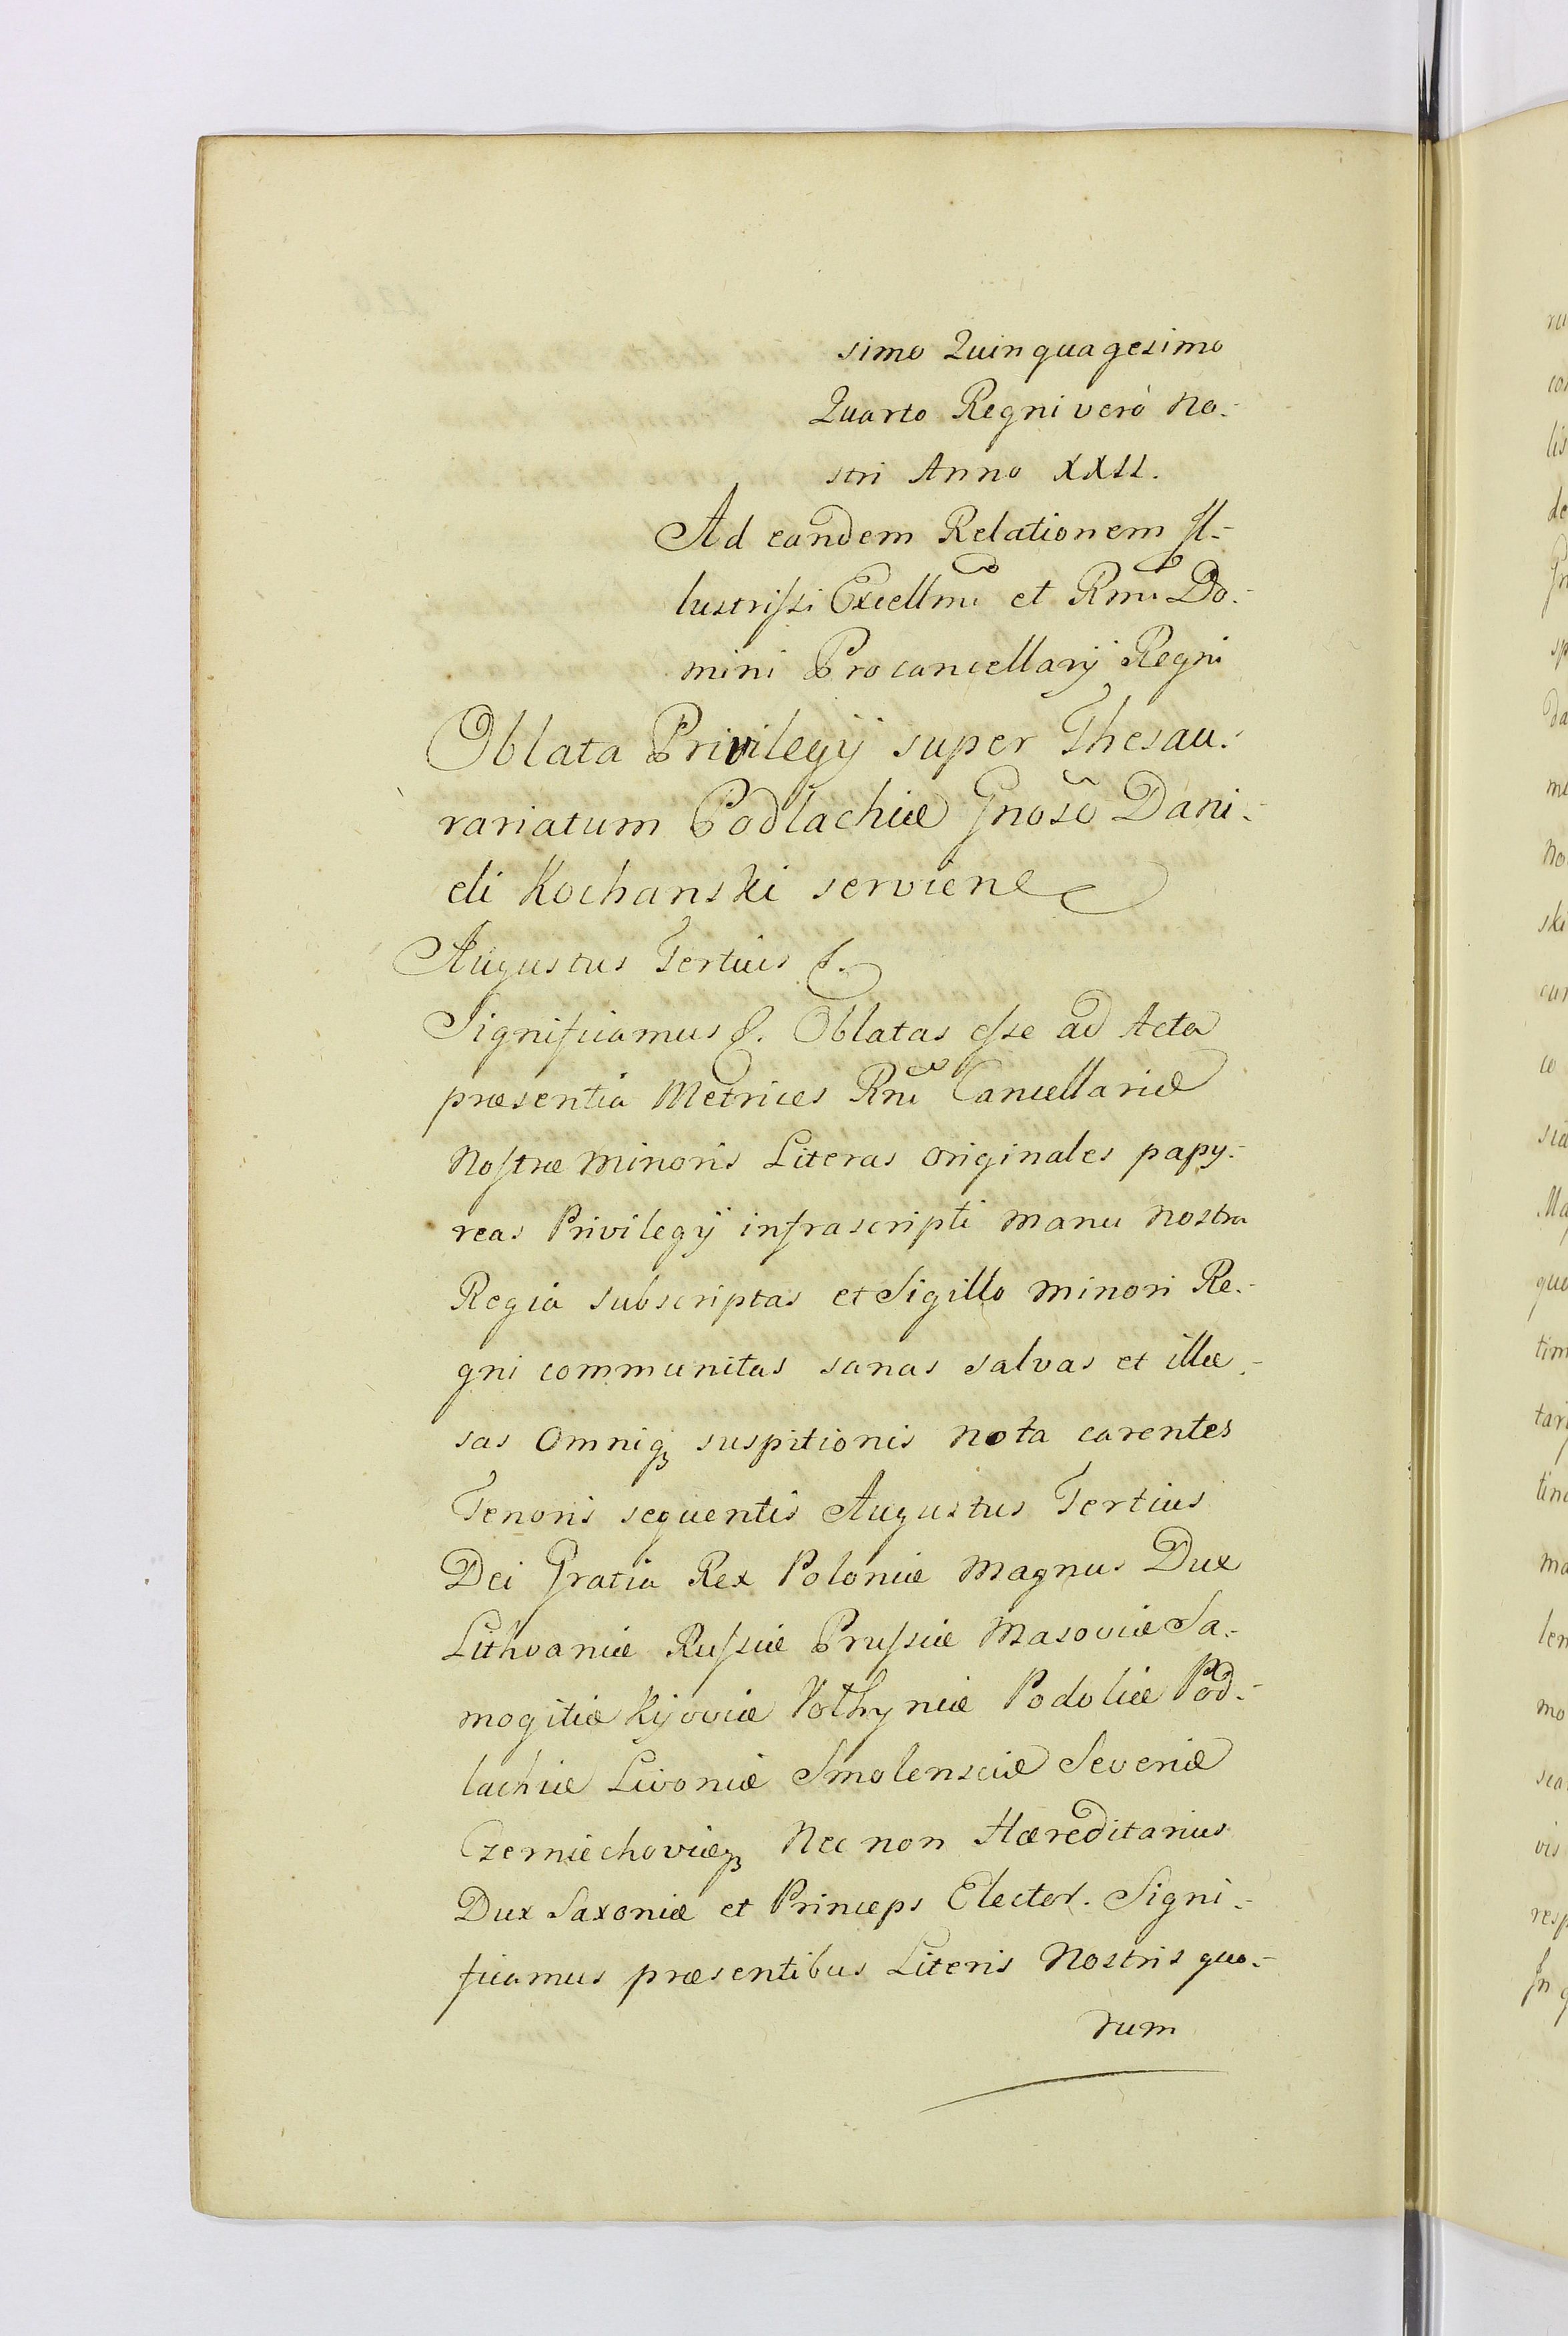 simo Quinquagesimo
Quarto Regni verò No-
stri Anno XXII.
Ad eandem Relationem Il-
lustrissi Excellmi et Rmi Do-
mini Procancellarij Regni
Oblata Privilegij super Thesau-
rariatum Podlachiæ Gnoso Dani-
eli Kochanski serviens
Augustus Tertius &.
Significamus &. Oblatas esse ad Acta
præsentia Metrices Rni Cancellariæ
Nostræ Minoris Literas originales papy-
reas Privilegij infrascripti Manu Nostra
Regia subscriptas et Sigillo Minori Re-
gni communitas sanas salvas et illæ-
sas Omniq suspitionis Nota carentes
Tenoris sequentis Augustus Tertius
Dei Gratia Rex Poloniæ Magnus Dux
Lithvaniæ Russiæ Prussiæ Masoviæ Sa-
mogitiæ Kijoviæ Volhyniæ Podoliæ Pod-
lachiæ Livoniæ Smolensciæ Severiæ
Czerniechoviæq Nec non Hæreditarius
Dux Saxoniæ et Princeps Elector. Signi-
ficamus præsentibus Literis Nostris quo-
rum